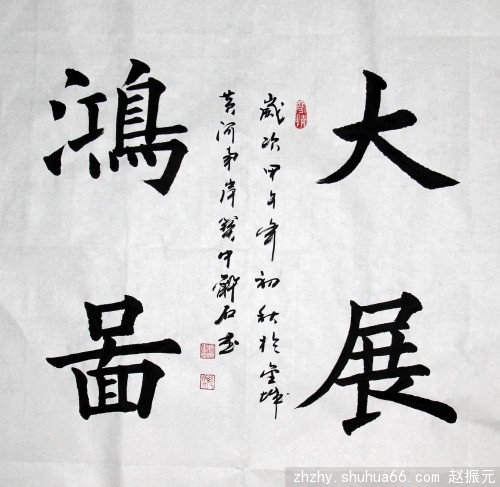 大展
鴻啚
歲次甲午年初秋於金城
黄河南岸中石书
zhzhy.shuhua66.com 赵振元